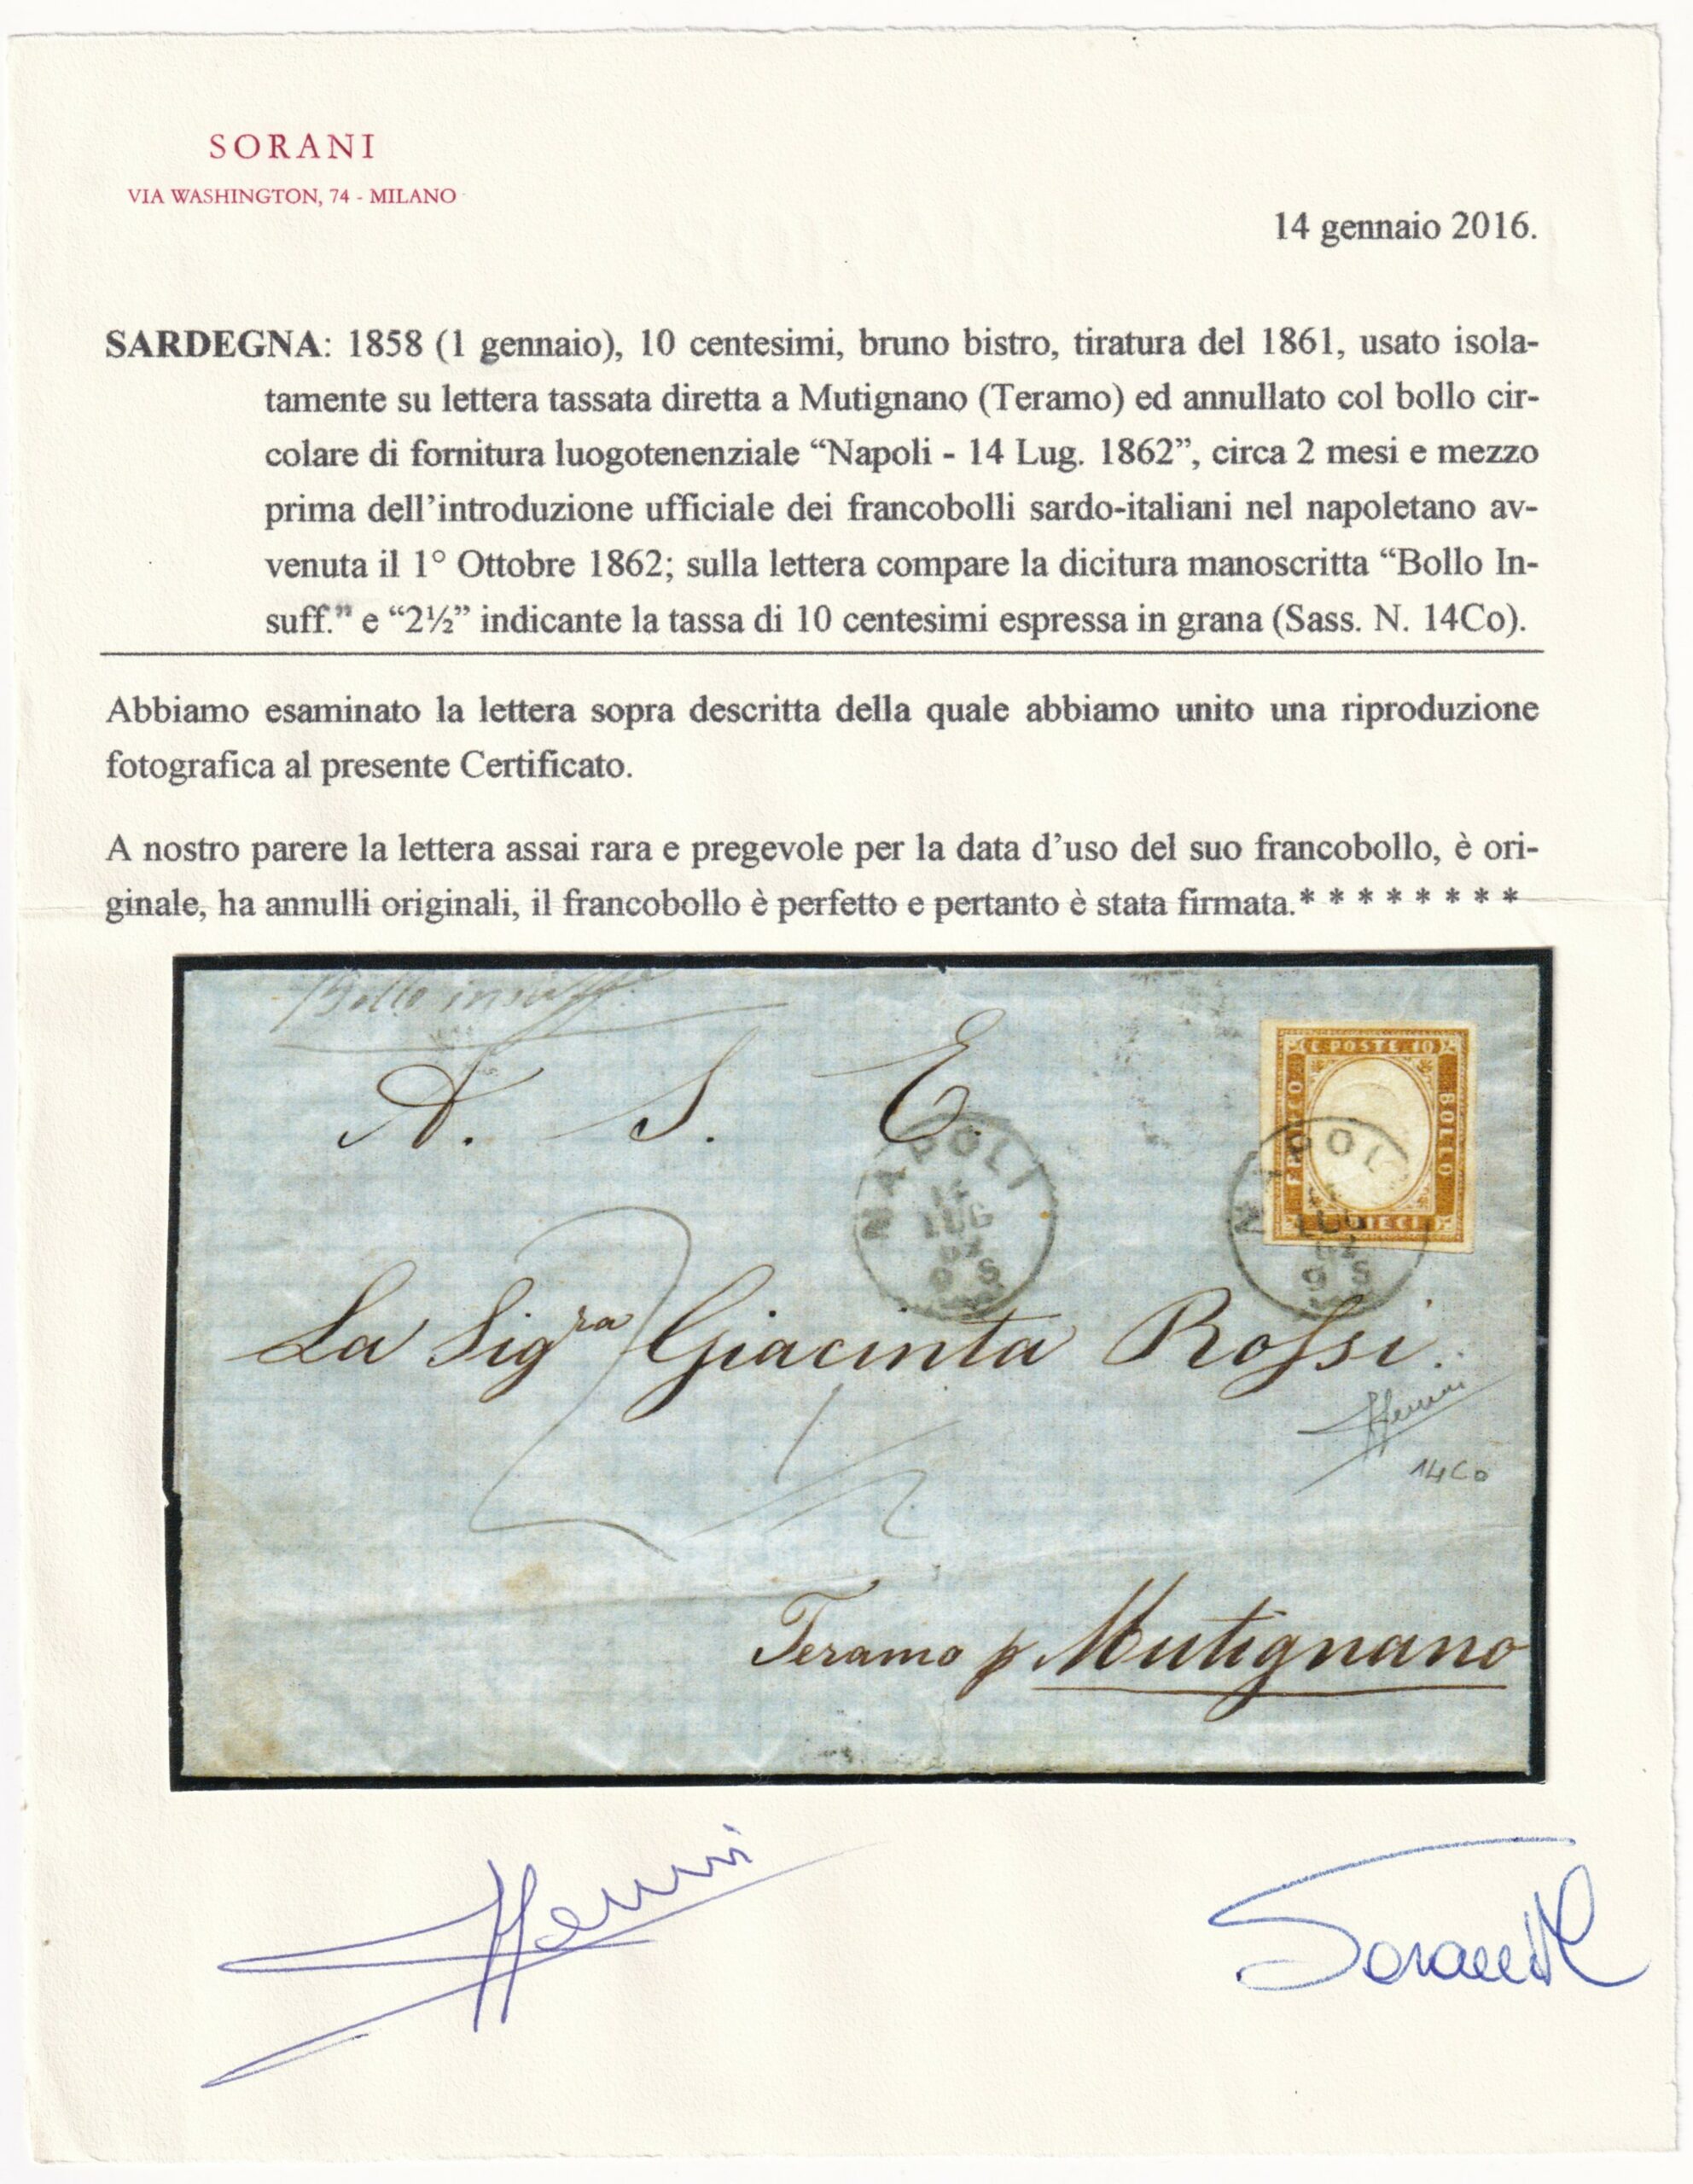 SORANI
VIA WASHINGTON, 74 - MILANO
14 gennaio 2016.
SARDEGNA: 1858 (1 gennaio), 10 centesimi, bruno bistro, tiratura del 1861, usato isola-
tamente su lettera tassata diretta a Mutignano (Teramo) ed annullato col bollo cir-
colare di fornitura luogotenenziale “Napoli - 14 Lug. 1862”, circa 2 mesi e mezzo
prima dell’introduzione ufficiale dei francobolli sardo-italiani nel napoletano av-
venuta il 1° Ottobre 1862; sulla lettera compare la dicitura manoscritta “Bollo In-
suff.” e “2½” indicante la tassa di 10 centesimi espressa in grana (Sass. N. 14Co).
Abbiamo esaminato la lettera sopra descritta della quale abbiamo unito una riproduzione
fotografica al presente Certificato.
A nostro parere la lettera assai rara e pregevole per la data d’uso del suo francobollo, è ori-
ginale, ha annulli originali, il francobollo è perfetto e pertanto è stata firmata.* * * * * * * *
Bollo insuff.
C POSTE 10
FRANCO
BOLLO
DIECI
A. S. E.
NAPOLI
14
LUG
62
S
NAPOLI
LUG
62
S
2 1/2
La Sigra Giacinta Rossi.
14Co
Teramo p Mutignano